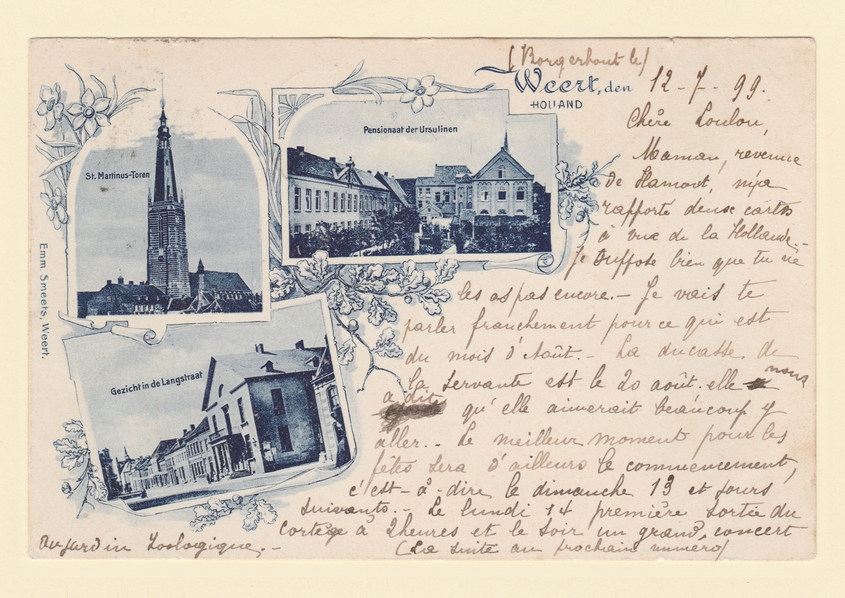 (Borgerhout le)
Weert, den 12-7-99.
HOLLAND
St. Martinus-Toren
Pensionaat der Ursulinen
Gezicht in de Langstraat
Emm. Smeets, Weert.
Chère Loulou,
Maman, revenue
de Hamont, m'a
rapporté deux cartes
à vue de la Hollande.-
Je suppose bien que tu ne
les as pas encore.- Je vais te
parler franchement pour ce qui est
du mois d'Août.- La ducasse de
la servante est le 20 août. elle nous
a dit qu'elle aimerait beaucoup y
aller.- Le meilleur moment pour les
fêtes sera d'ailleurs le commencement,
c'est-à-dire le dimanche 13 et jours
suivants.- Le lundi 14 première sortie du
cortège à 2 heures et le soir un grand concert
au jardin Zoologique.-
(La suite au prochain numéro)